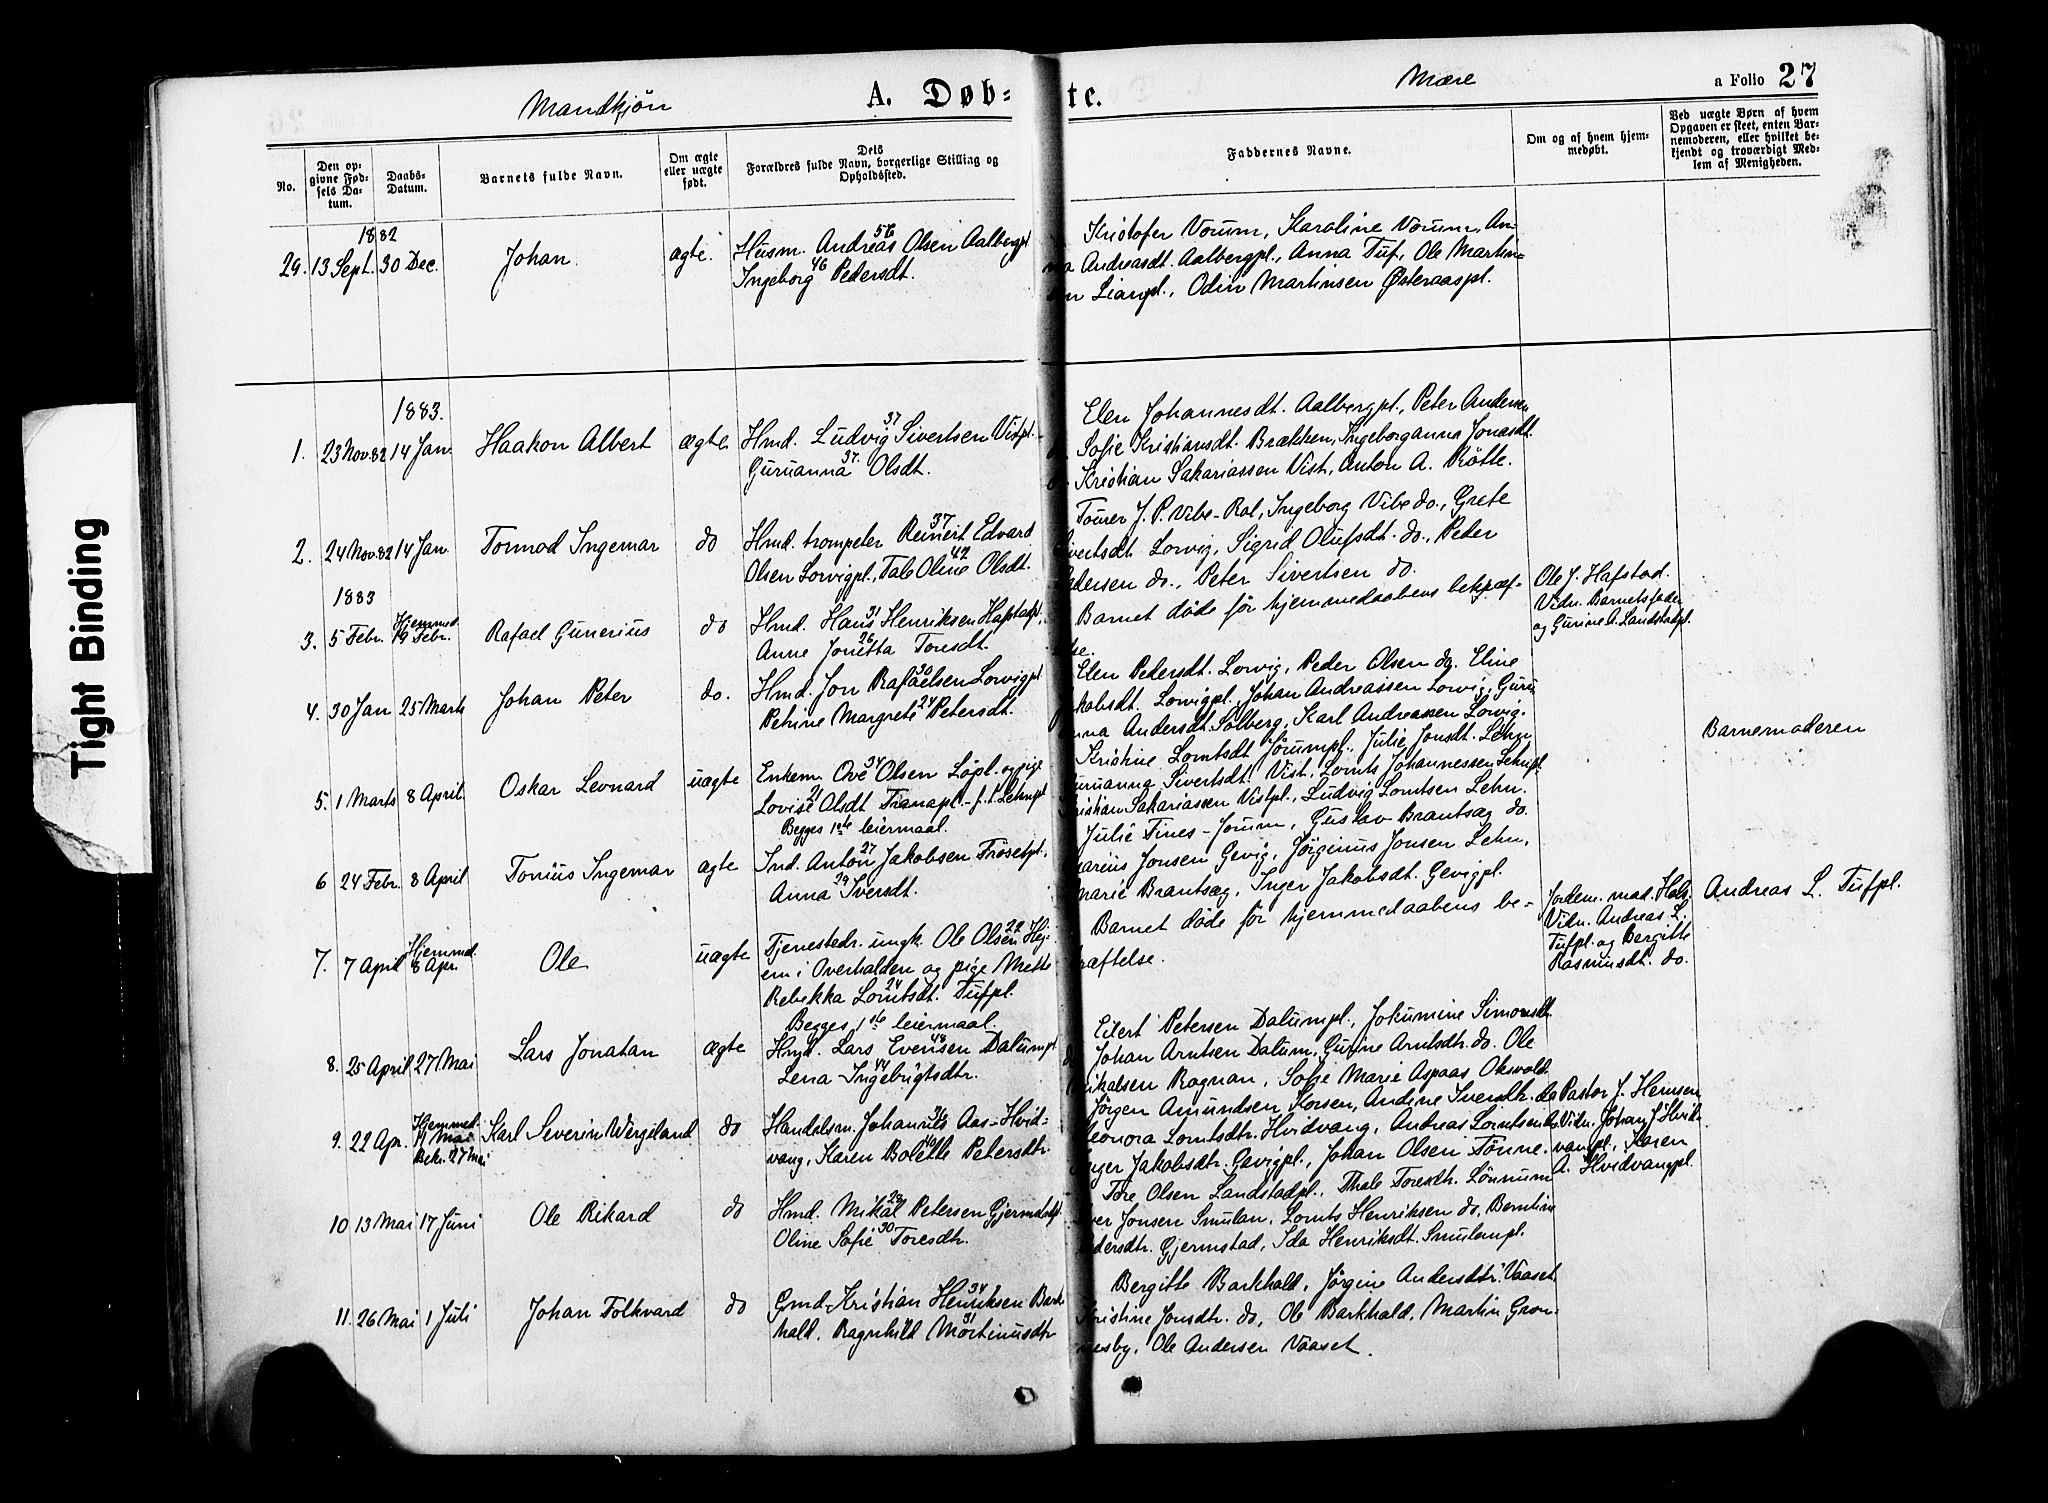 Tight Binding
Mandkjön
A. Døb=
te.
Mære
a Folio 27
No.
Den op-
givne Fød-
sels Da-
tum.
Daabs-
Datum.
Barnets fulde Navn.
Om ægte
eller uægte
født.
Dets
Forældres fulde Navn, borgerlige Stilling og
Opholdssted.
Faddernes Navne.
Om og af hvem hjem-
medøbt.
Ved uægte Børn af hvem
Opgaven er skeet, enten Bar-
nemoderen, eller hvilket be-
kjendt og troværdigt Med-
lem af Menigheden.
1882
29. 13 Sept. 30 Dec. Johan. ægte. Husm. Andreas 56 Olsen Aalbergpl
Ingeborg 46 Pedersdt.
Kristofer Vorum, Karoline Vorum, An-
na Andreasdt. Aalbergpl., Anna Tuf, Ole Martin=
sen Liangpl., Odin Martinsen Østeraaspl.
1883.
1. 23 Nov. 82 14 Jan Haakon Albert ægte Hmd. Ludvig 37 Sivertsen Vistpl.
Guruanna 37. Olsdt.
Elen Johannesdt. Aalbergpl., Peter Andersen
Sofie Kristiansdt. Brækken, Ingeborganna Jonasdt.
Kristian Sakariassen Vist, Anton A. Røtte.
2. 24 Nov. 82 14 Jan. Tormod Ingemar do Hmd. trompeter Reinert 37 Edvard
Olsen Lorvigpl., Tale Oline 42 Olsdt.
J. P. Vibe-Rol, Ingeborg Vibe do., Grete
Sivertsdt Lorvig, Sigrid Olufsdt. do., Peder
Pedersen do., Peter Sivertsen do.
1883
3. 5 Febr. Hjemmd. 19 Febr. Rafael Gunerius do Hmd. Hans 31 Henriksen Hafstadpl.
Anne Jonetta 26 Toresdt.
Barnet døde før hjemmedaabens bekræf-
telse.
Ole J. Hafstad.
Vidn. Barnets fader
og Gurine A. Landstadpl.
4. 30 Jan 25 Marts Johan Peter do. Hmd. Jon Rafaelsen 30 Lorvigpl
Petrine Margrete 24 Petersdt.
Elen Pedersdt. Lorvig, Peder Olsen do. Eline
Jakobsdt. Lorvigpl., Johan Andreassen Lorvig, Guru
Anna Andersdt. Solberg, Karl Andreassen Lorvig.
5. 1 Marts 8 April. Oskar Leonard uægte Enkem. Ove 34 Olsen Løpl. og pige
Lovise 21 Olsdt Tranapl. - f. t. Lehnpl
Begges 1ste leiermaal.
Kristine Lorntsdt Jørumpl., Julie Jonsdt. Lehn
Guruanna Sivertsdt. Vist, Lornts Johannessen Lehnpl.
Kristian Sakariassen Vistpl., Ludvig Lorntsen Lehn.
Barnemoderen
6 24 Febr. 8 April Tonius Ingemar ægte Ind. Anton 27 Jakobsen Trøsetpl.
Anna 29 Iversdt.
Julie Fines-Jorum, Gustav Brantsæg do.
Marius Jonsen Gevig, Jørginus Jonsen Lehn,
Marie Brantsæg, Inger Jakobsdt. Gevigpl.
7. 7 April Hjemmd. 8 Apr. Ole uægte Tjenestedr. ungk. Ole Olsen 22 Hej-
em i Overhalden og pige Mette
Rebekka Lorntsdt. 24 Tufpl.
Begges 1ste leiermaal.
Barnet døde før hjemmedaabens be-
kræftelse.
Jordem. mad. Hals.
Vidn. Andreas L.
Tufpl. og Bergitte
Rasmusdt. do.
Andreas L. Tufpl.
8. 25 April 27. Mai Lars Jonatan ægte Hmd. Lars Evensen 43 Dalumpl
Lena Ingebrigtsdtr. 44
Eilert Petersen Dalumpl., Jokumine Simonsdt
Johan Arntsen Dalum, Gurine Arntsdtr. do. Ole
Mikalsen Rognan, Sofie Marie Aspaas Okvold.
9. 22 Apr. Hjemmd. 11 Mai Bekr. 27 Mai Karl Severin Wergeland do Handelsm. Johannes 36 Aas-Hvid=
vang, Karen Bolette 40 Petersdtr.
Jørgen Amundsen Korsen, Andine Iversdtr. do
Leonora Lorntsdtr. Hvidvang, Andreas Lorntsen do.
Inger Jakobsdtr. Gevigpl., Johan Olsen Tønne.
Pastor J. Hemsen
Vidn. Johan J. Hvid-
vangpl., Karen
A. Hvidvangpl.
10 13 Mai 17 Juni Ole Rikard do Hmd. Mikal 29 Petersen Gjermstadpl
Oline Sofie 30 Toresdtr.
Tore Olsen Landstadpl., Thale Toresdtr. Lønnum
Iver Jonsen Smulan, Lornts Henriksen do, Berntine
Pedersdtr. Gjermstad, Ida Henriksdt. Smulanpl.
11. 26 Mai 1 Juli Johan Folkvard do Gmd. Kristian Henriksen 34 Bark
hald. Ragnhild Mortinusdtr 31
Bergitte Barkhald, Jørgine Andersdtr. Vaaset
Kristine Jonsdtr. do, Ole Barkhald, Martin Gron-
nesby, Ole Andersen Vaaset.